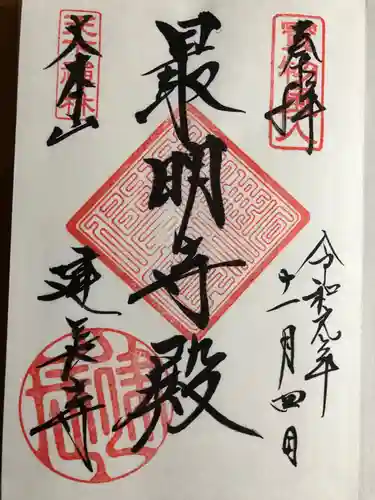 奉拝
令和元年
十一月四日
最明寺殿
大本山
建長寺